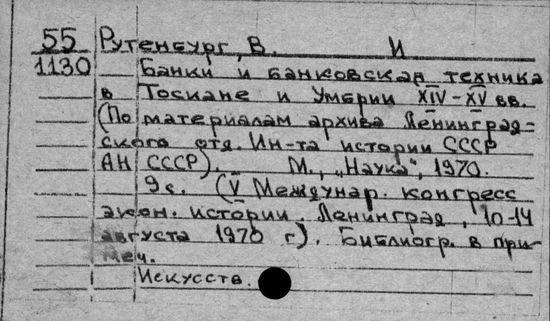 55 Рутенбург, В. И
1130 Банки и банковская техника
в Тоскане и Умбрии XIV-XV вв.
(По материалам архива Ленинград-
ского отд. Ин-та истории СССР
АН СССР). М., „Наука", 1970.
9с. (V Междунар. конгресс
экон. истории. Ленинград, 10-14
августа 1970 г). Библиогр. в при-
меч.
Искусств.